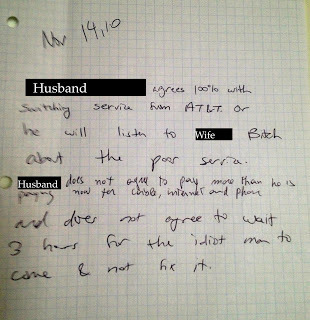 Nov 14, 10
Husband agrees 100% with
switching service from AT&T. or
he will listen to Wife Bitch
about the poor servia.
Husband does not agree to pay more than he is
paying now for cable, internet and phone
and does not agree to wait
3 hours for the idiot man to
come & not fix it.